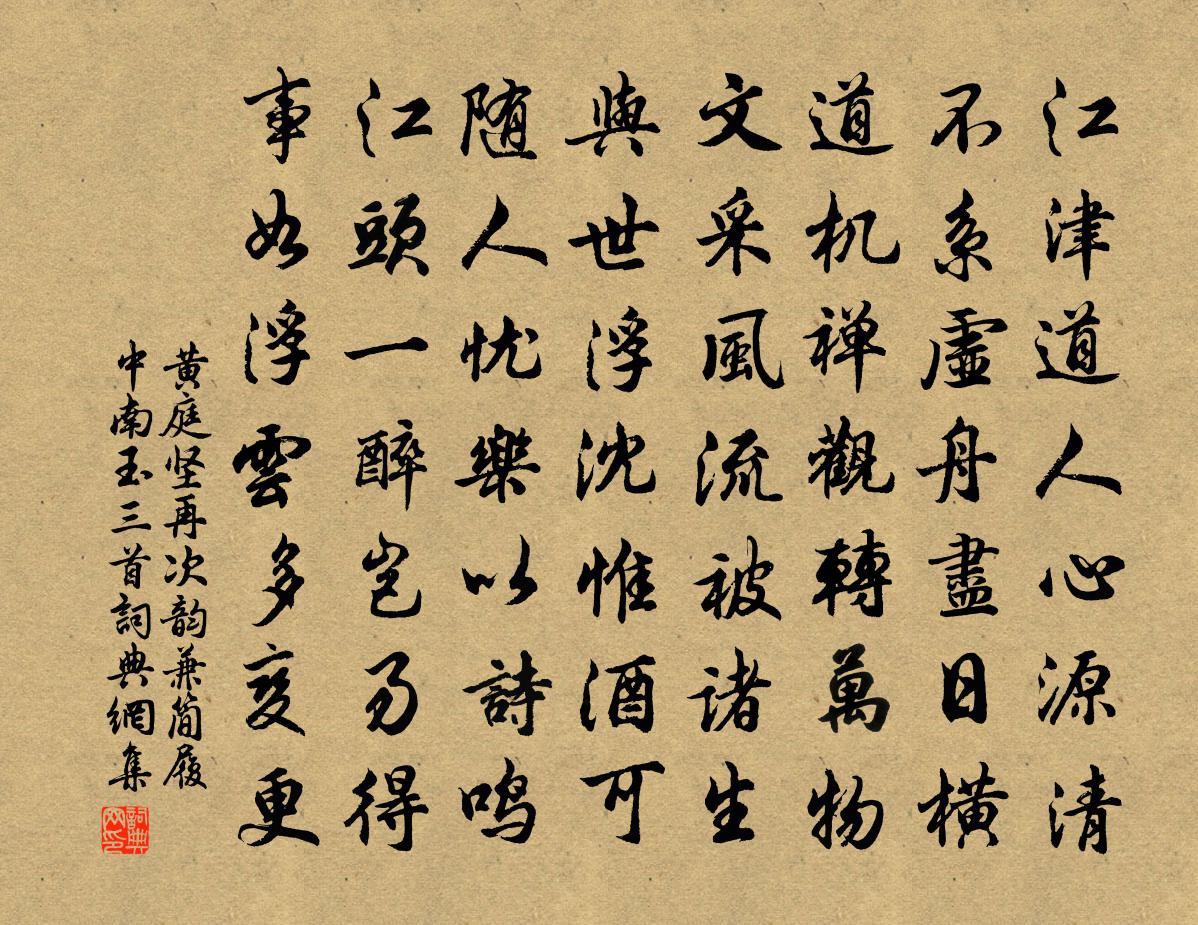 江津道人心源清
不系虛舟盡日橫
道机禅觀轉萬物
文采風流被诸生
與世浮沈惟酒可
随人忧樂以詩鸣
江頭一醉岂易得
事如浮雲多变更
黄庭坚再次韵兼简履
中南玉三首詞典網集
詞典
网印